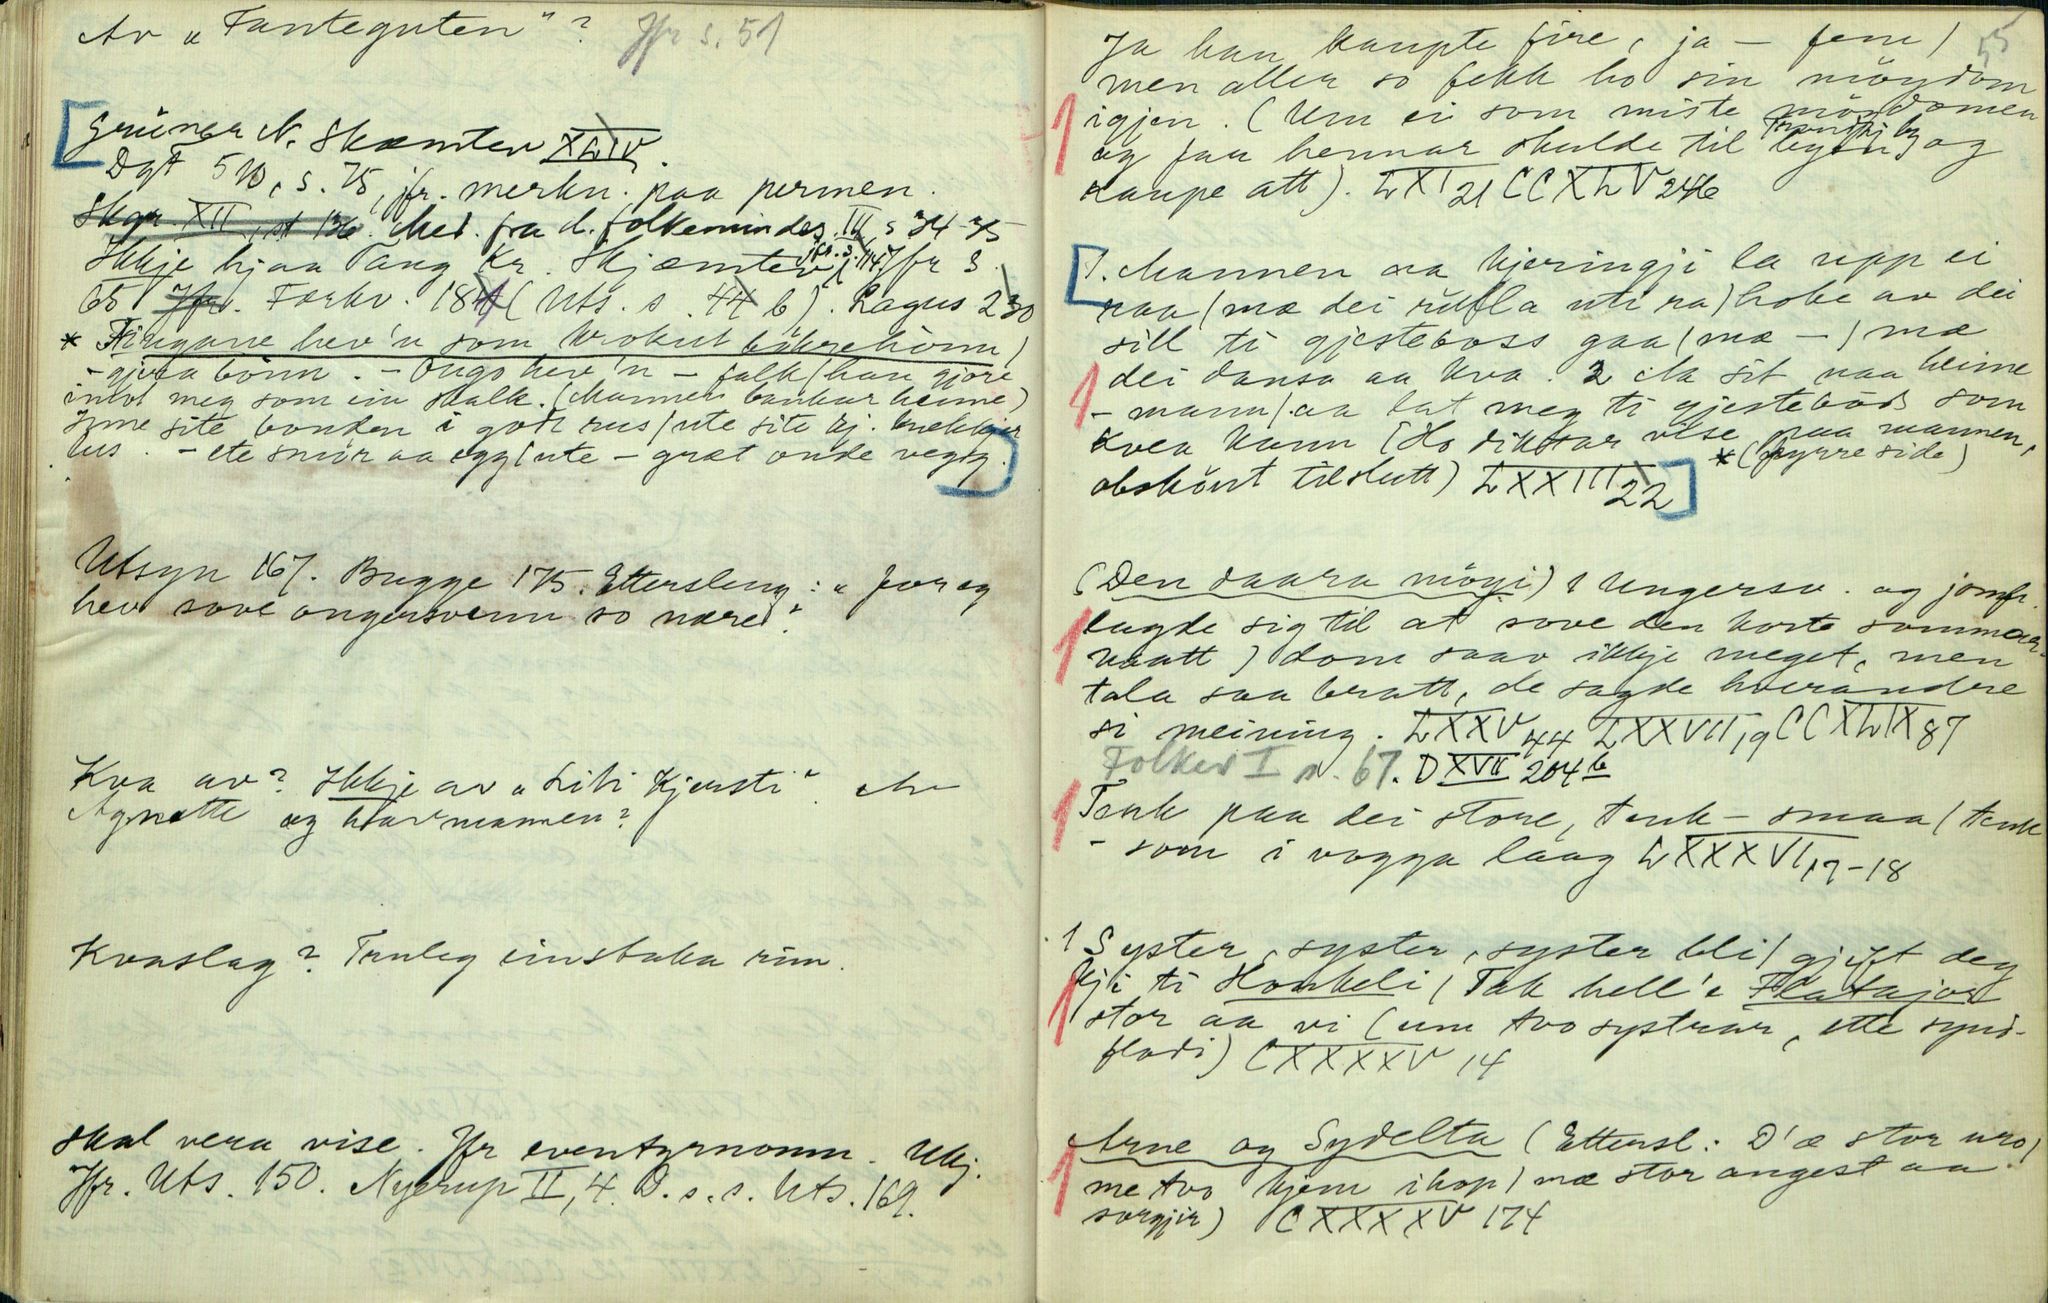 Av „Fanteguten"? Jfr s. 51
Grüner N. Skæmtev XLIV.
Dgf 510, s. 75, jfr. merkn. paa permen.
Skgr. XII, st 136. Med. fra d. folkeminders. III, s 34-35
Ikkje hjaa Tang Kr. Skjæmtev. Jfr s.
65 Jfr. Forkv. 184 (Uts. s. 44 b). Lagus 230
* Fingane hev'n som krokut bökrehönn /
- gjera bönn. - Ougo hev'n - falk / han gjöre
imot meg som ein skalk. (Mannen bankar heime)
Inne site bonden i godt rus / ute site kj. knekkjer
lus. - ete smör aa egg / ute - græt onde vegg.
Utsyn 167. Bugge 175. Ettersleng: „for eg
hev sove ongersvenn so nære"?
Kva av? Ikkje av „Liti Kjersti". Av
Agnette og havmannen?
Kvaslag? Truleg einstaka rim.
Skal vera vise. Jfr eventyrnomn. Ukj.
Jfr. Uts. 150. Nyerup II, 4. D. s. s. Uts. 169.
55
Ja han kaupte fire, ja - fem /
men aller so fekk ho sin möydom
igjen. (Um ei som miste möydomen
og faa hennar skulde til og
kaupe att). LXI 21 CCXLV 246
1. Mannen aa kjeringji la upp ei
raa / mæ dei rufla uti ra / hoke av dei
sill ti gjesteboss gaa / mæ - / mæ
dei dansa aa kva. 2 Aa sit naa heime
- mann / aa lat meg ti gjestebods som
kvea kann (Ho diktar vise paa mannen,
* (fyrre side)
obskönt tilslutt) LXXIII 22
(Den daara möyi) 1 Ungersv. og jomfr.
lagde sig til at sove den korte sommar-
naatt / dom saav ikkje meget, men
tala saa bratt, de sagde hverandre
si meining. LXXV 44 LXXVII 19 CCXLIX 87
Folkev I n. 67. D XVII 204 b
Tenk paa dei store, tenk - smaa / tenk
- som i vogga laag LXXXVI, 17-18
1 Syster, syster, syster bli / gjift deg
kji ti Houkeli / Tak hell'e Flatajor
stor aa vi (um tvo systrar, ette synd-
flodi) CXXXXV 14
Arne og Sydelta (Ettersl: D'æ stor uro /
me tvo kjem ihop / mæ stor angest aa
sorgjir) CXXXXV 174